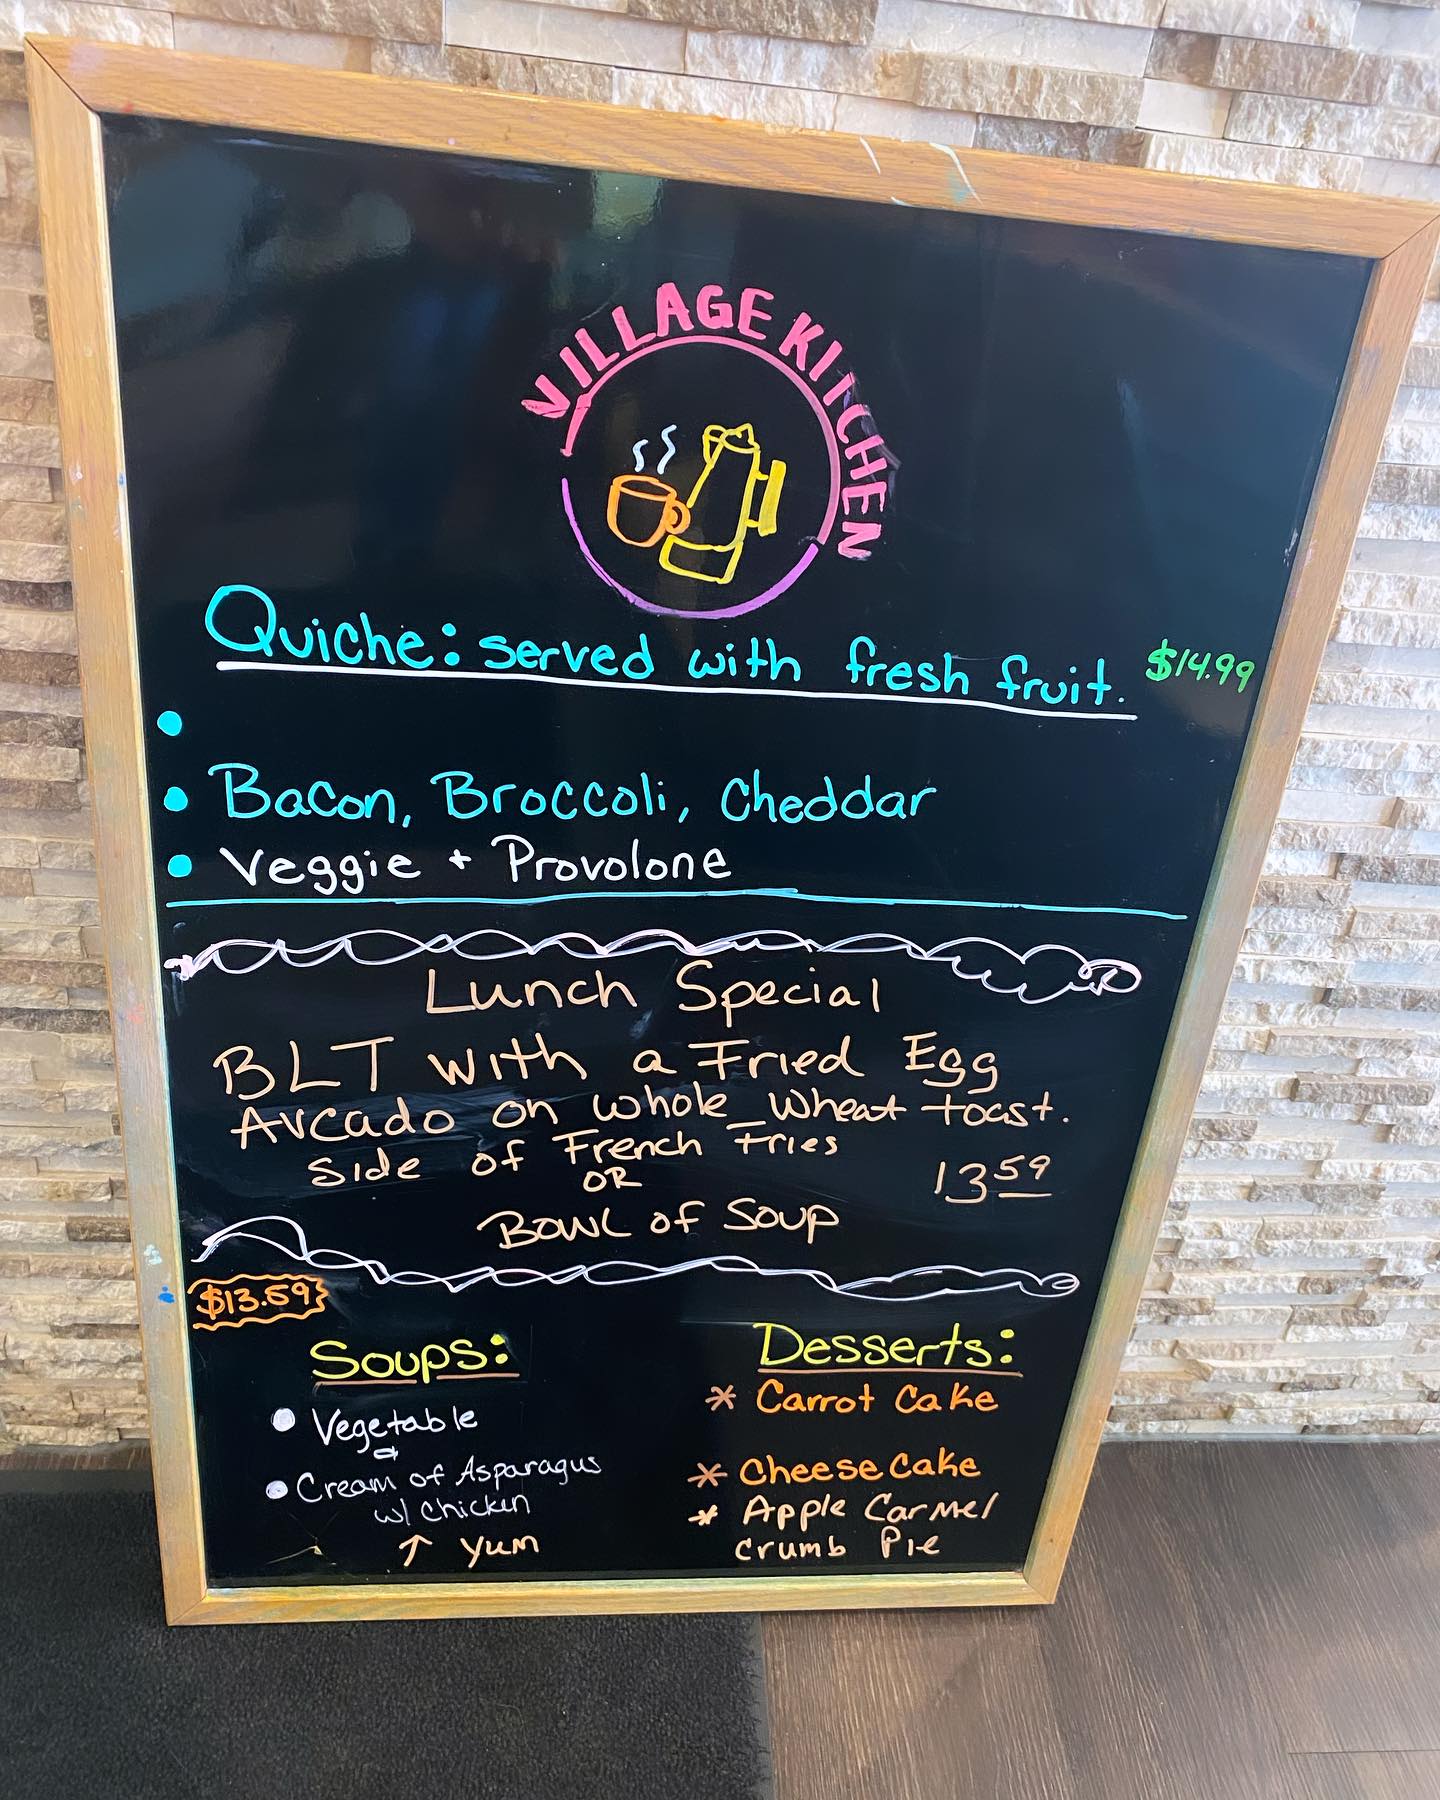 VILLAGE KITCHEN
Quiche: served with fresh fruit. $14.99
Bacon, Broccoli, Cheddar
Veggie + Provolone
Lunch Special
BLT with a Fried Egg
Avcado on whole wheat toast.
Side of French Fries
OR
13.59
Bowl of Soup
$13.59
Soups:
Vegetable
&
Cream of Asparagus
w/ Chicken
↑ Yum
Desserts:
* Carrot Cake
* Cheese Cake
* Apple Carmel
Crumb Pie